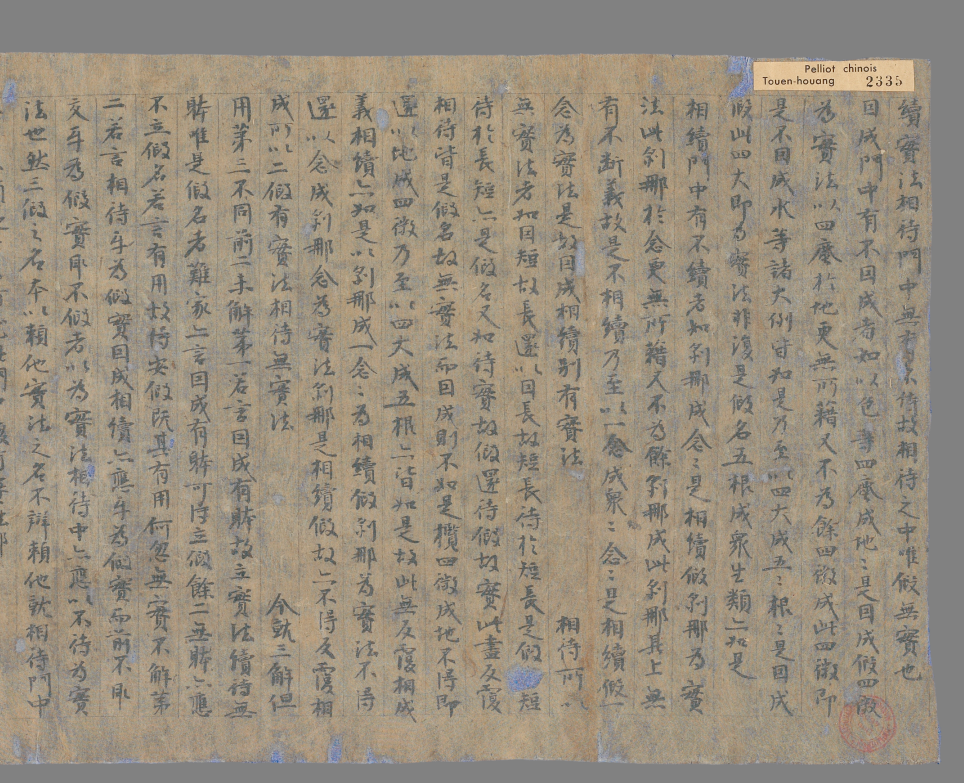 Pelliot chinois
Touen-houang 2335
續實法相待門中無有不待故相待之中唯假無實也
因成門中有不因成者如以色等四塵成地〻是因成假四微
為實法以四塵於地更無所藉又不為餘四微成此四微即
是不因成水等諸大例皆如是乃至以四大成五〻根〻是因成
假此四大即為實法非復是假名五根成衆生類亦如是
相續門中有不續者如剎那成念〻是相續假剎那為實
法此剎那於念更無所藉又不為餘剎那成此剎那其上無
有不斷義故是不相續乃至以一念成衆〻念〻是相續假一
念為實法是故因成相續別有實法 相待所以
無實法者如因短故長還以因長故短長待於短長是假短
待於長短亦是假名又如待實故假還待假故實此盡反覆
相待皆是假名故無實法而因成則不如是攬四微成地不得即
還以地成四微乃至以四大成五根亦皆如是故此無反覆相成
義相續亦如是以剎那成一念〻為相續假剎那為實法不得
還以念成剎那念為實法剎那是相續假故亦不得反覆相
成所以二假有實法相待無實法 今就三解但
用第三不同前二未解第一若言因成有體故立實法續待無
體唯是假名者難家亦言因成有體可得立假餘二無體亦應
不立假名若言有用故得安假既其有用何忽無實不解第
二若言相待互為假實因成相續亦應互為假實而前不即
交互為假實即不假者以為實法相待中亦應以不待為實
法也然三假之名本以賴他實法之名不辯賴他就相待門中